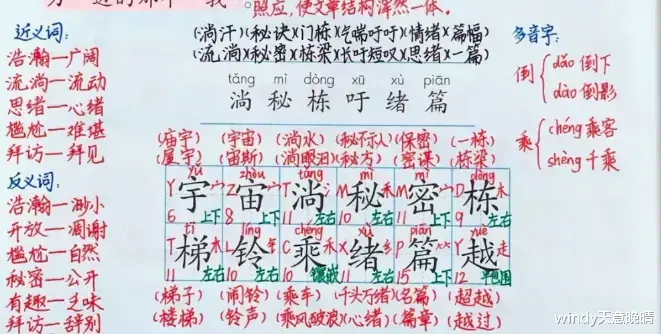 照应,使文章结构浑然一体。
近义词:
浩瀚—广阔
流淌—流动
思绪—心绪
尴尬—难堪
拜访—拜见
反义词:
浩瀚—渺小
开放—凋谢
尴尬—自然
秘密—公开
有趣—乏味
拜访—辞别
(淌汗)(秘诀)(门栋)(气喘吁吁)(情绪)(篇幅)
(流淌)(秘密)(栋梁)(长吁短叹)(思绪)(一篇)
tǎng mì dòng xū xù piān
淌 秘 栋 吁 绪 篇
(庙宇) (宇宙) (淌水) (秘不示人) (保密) (一栋)
(屋宇) (宙斯) (淌眼泪) (秘方) (密谋) (栋梁)
yǔ zhòu tǎng mì mì dòng
Y宀 Z宀 T氵 M禾 M宀 D木
宇 宙 淌 秘 密 栋
6 上下 8 上下 11 左右 10 左右 11 上下 9 左右
tī líng chéng xù piān yuè
T木 L钅 C禾 X纟 P⺮ Y走
梯 铃 乘 绪 篇 越
11 左右 10 左右 10 镶嵌 11 左右 15 上下 12 半包围
(梯子) (闹铃) (乘车) (千头万绪) (名篇) (超越)
(楼梯) (铃声) (乘风破浪) (心绪) (篇章) (越过)
多音字:
倒 { dǎo 倒下
dào 倒影
乘 { chéng 乘客
shèng 千乘
windy天意晚晴